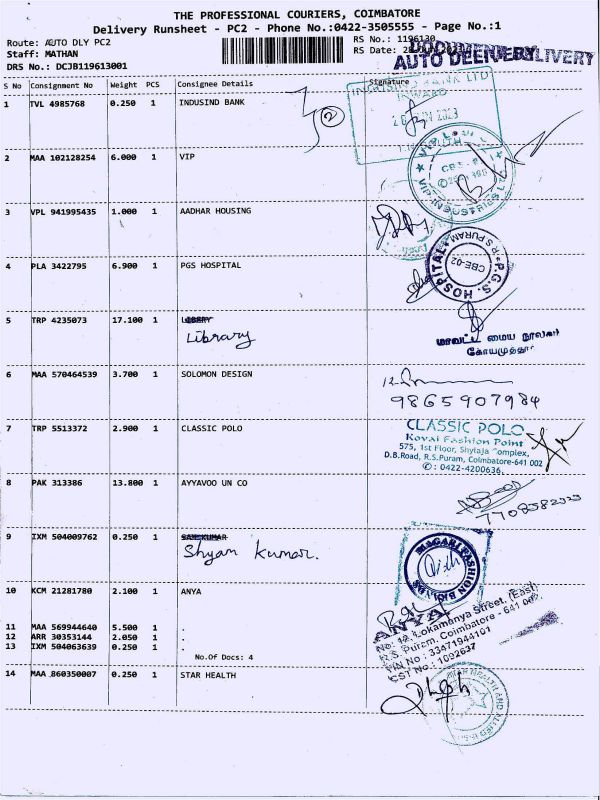 THE PROFESSIONAL COURIERS, COIMBATORE
Delivery Runsheet - PC2 - Phone No.:0422-3505555 - Page No.:1
Route: AUTO DLY PC2
Staff: MATHAN
DRS No.: DCJB119613001
RS No.: 1196130
RS Date: 28
AUTO DELIVERY
S No Consignment No Weight PCS Consignee Details Signature
1 TVL 4985768 0.250 1 INDUSIND BANK
2
INDUSIND BANK LTD
INWARD
2 MAA 102128254 6.000 1 VIP
VIP INDUSTRIES LTD
3 VPL 941995435 1.000 1 AADHAR HOUSING
4 PLA 3422795 6.900 1 PGS HOSPITAL
P.G.S. HOSPITAL
R.S PURAM
CBE-02
5 TRP 4235073 17.100 1
Library
மாவட்ட மைய நூலகர்
கோயமுத்தூர்
6 MAA 570464539 3.700 1 SOLOMON DESIGN
9865907984
7 TRP 5513372 2.900 1 CLASSIC POLO
CLASSIC POLO
Kovai Fashion Point
575, 1st Floor, Shylaja Complex,
D.B.Road, R.S.Puram, Coimbatore-641 002
✆: 0422-4200636
8 PAK 313386 13.800 1 AYYAVOO UN CO
9 IXM 504009762 0.250 1
Shyam Kumar.
10 KCM 21281780 2.100 1 ANYA
ANYA
No: 12, Lokamanya Street, (East)
R.S. Puram, Coimbatore - 641 002
TIN No : 33471944101
CST No.: 1092637
11 MAA 569944640 5.500 1 .
12 ARR 30353144 2.050 1 .
13 IXM 504063639 0.250 1 .
No.Of Docs: 4
14 MAA 860350007 0.250 1 STAR HEALTH
STAR HEALTH AND ALLIED